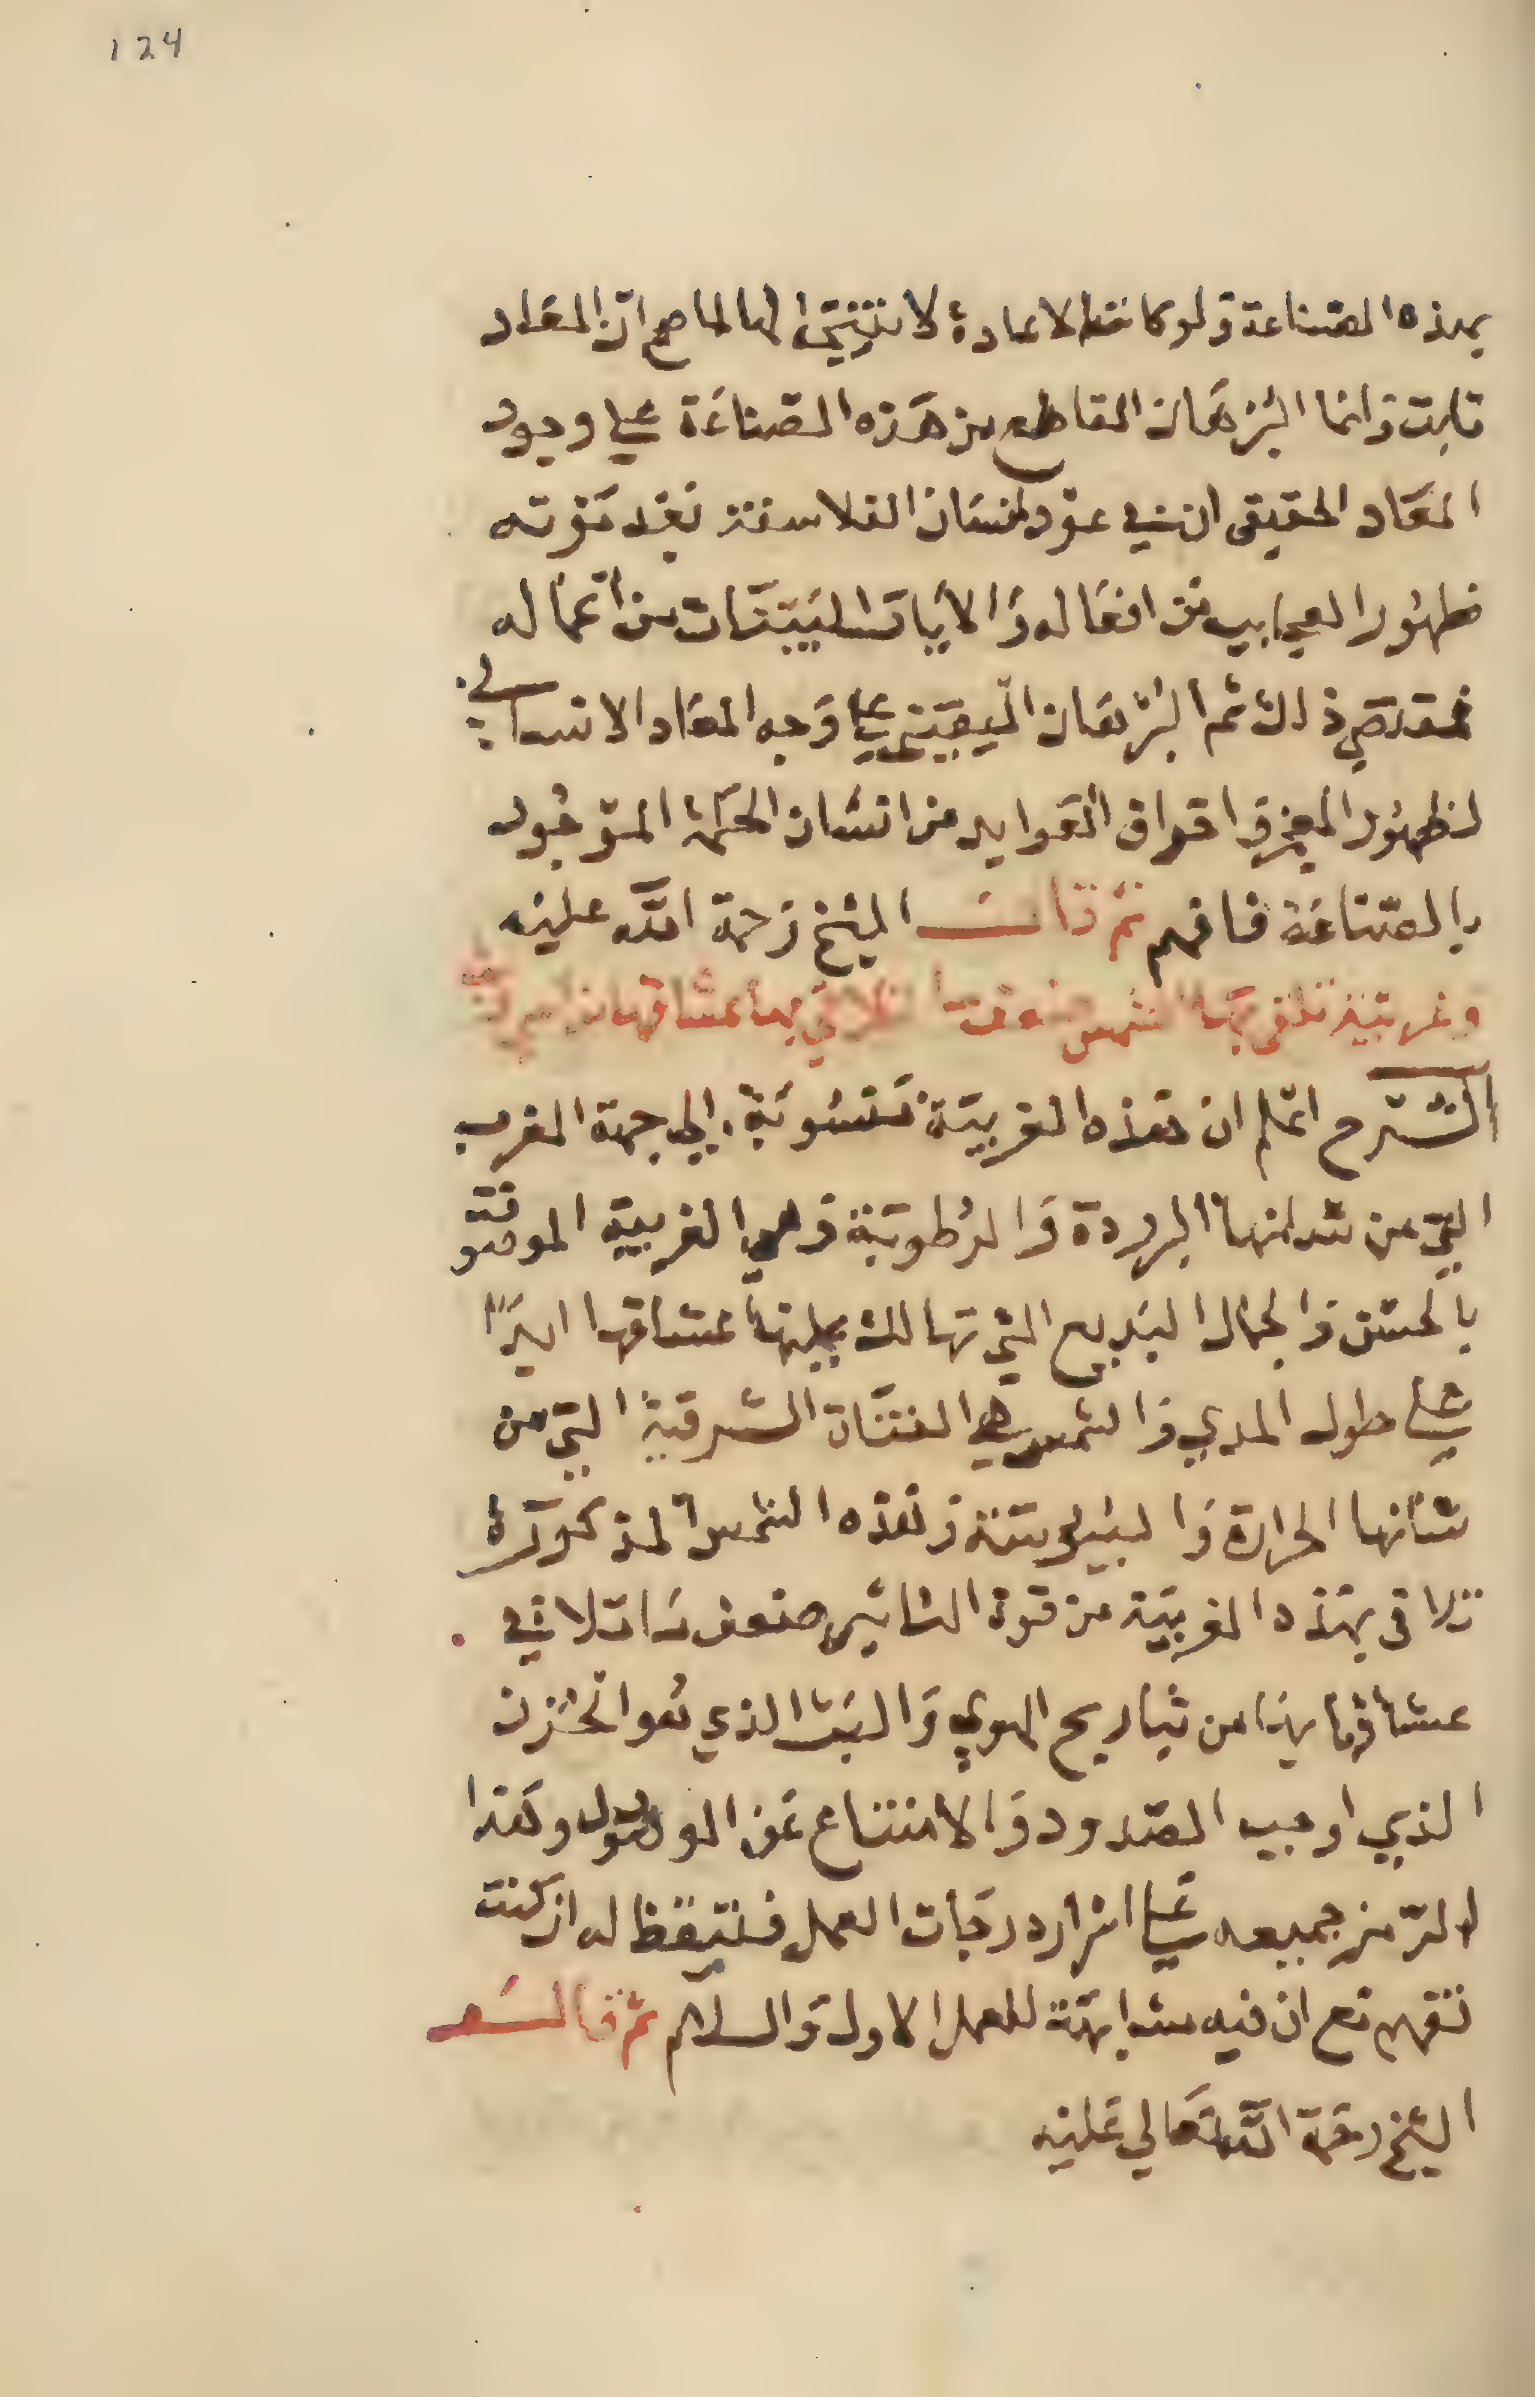 124
بهذه الصناعة ولو كانت الاعادة لا تنتج لها لما صح ان المعاد
ثابت وانما البرهان القاطع من هذه الصناعة على وجود
المعاد الحقيقي عود انسان الفلاسفة بعد موته
ظهور العجايب من افعاله والآيات البينات من اعماله
ذلك ثم البرهان اليقيني على وجه المعاد الانساني
لظهور المعجز العوايد من انسان الحكمة الموجود
بالصناعة فافهم ثم قال الشيخ رحمة الله عليه
وغربية تلقى بها الشمس تلاقي بها عشاقها
الشرح اعلم ان هذه الغربية منسوبة الى جهة المغرب
التي من شانها البرودة والرطوبة وهي الغربية الموصوفة
بالحسن والجمال البديع التي تهالك عليها عشاقها ابدًا
على طول المدي والشمس هي الفتاة الشرقية التي من
شانها الحرارة واليبوسة وهذه الشمس المذكورة
تلاقى بهذه الغربية من قوة التاثير ضعف ما تلاقي
عشاقها بها من تباريح الهوي والبث الذي هو الحزن
الذي اوجب الصدود والامتناع عن الوصول وهذا
الرمز جميعه على اسرار درجات العمل فتيقظ له ان كنت
تفهم مع ان فيه مشابهة للعمل الاول والسلام ثم قال
الشيخ رحمة الله تعالي عليه